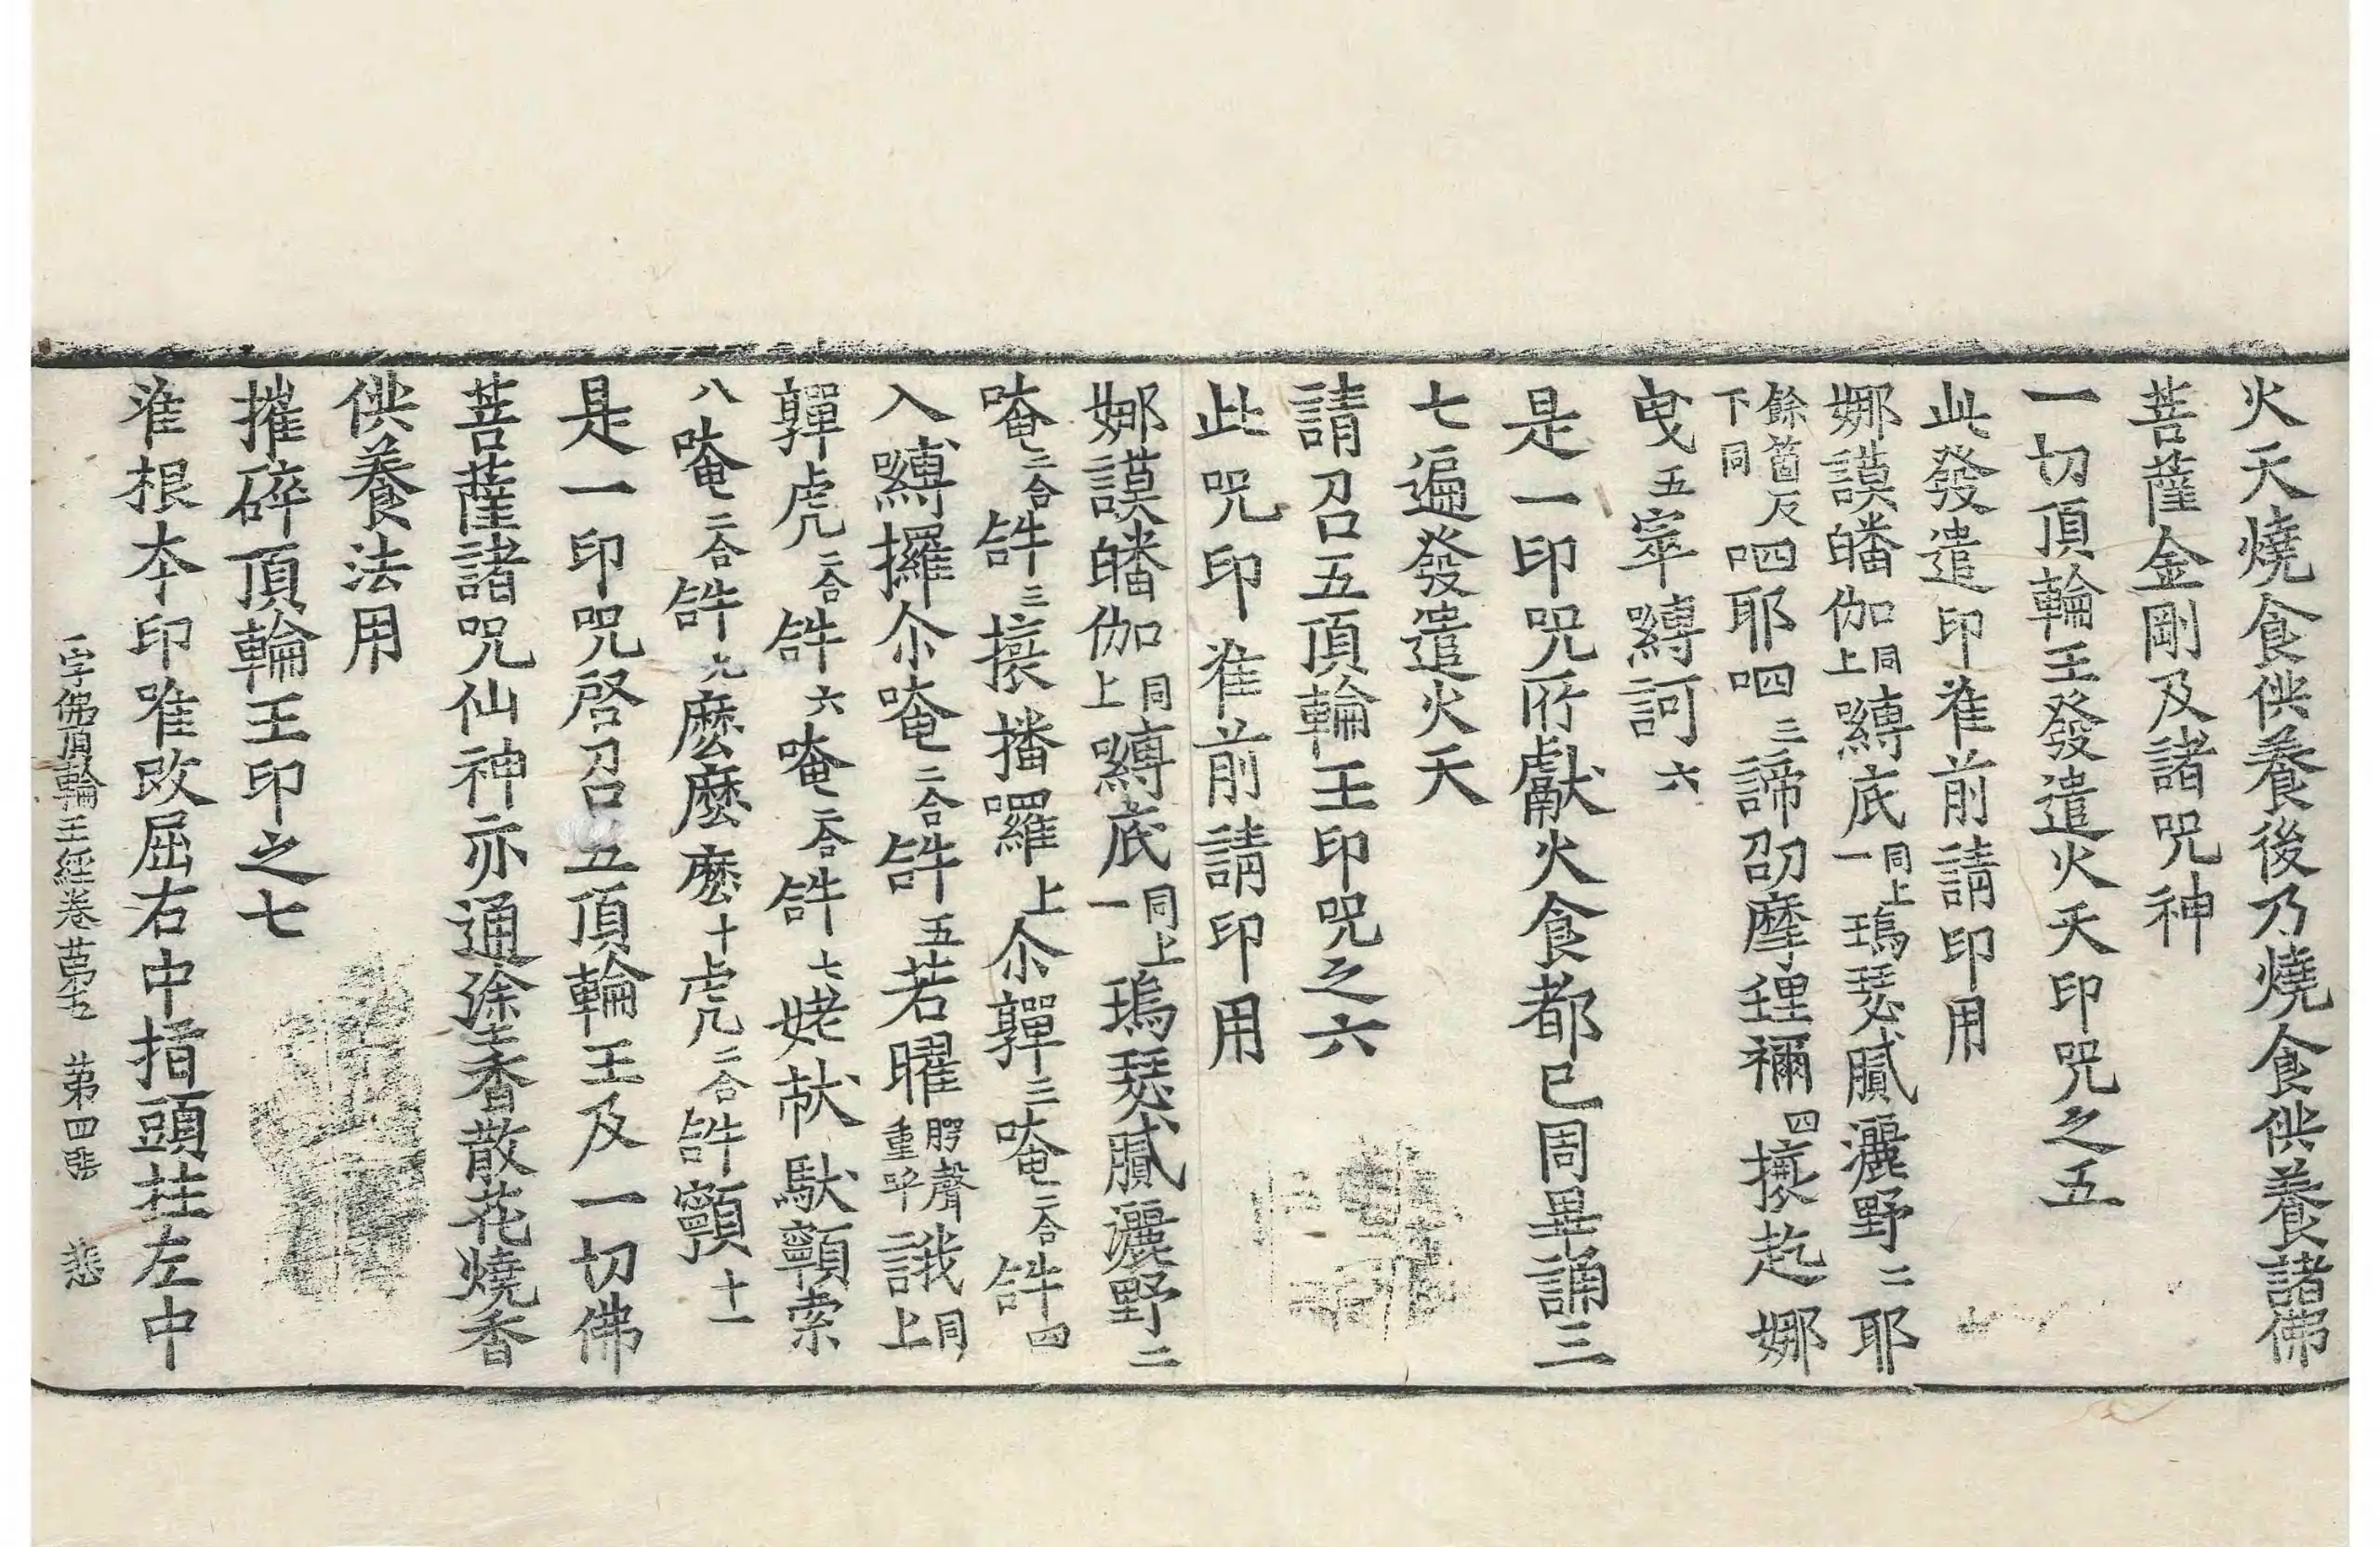 火天燒食供養後乃燒食供養諸佛
菩薩金剛及諸呪神
一切頂輪王發遣火天印呪之五
此發遣印准前請印用
娜謨皤伽上同嚩底一同上瑦瑟膩灑野二耶
餘箇反下同呬耶呬三諦劭摩𤦺禰四㩲趂娜
曳五窣嚩訶六
是一印呪所獻火食都已周畢誦三
七遍發遣火天
請召五頂輪王印呪之六
此呪印准前請印用
娜謨皤伽同上嚩底同上一瑦瑟膩灑野二
唵二合𤙖三㩲播囉上尒嚲三唵二合𤙖四
入嚩攞尒唵二合𤙖五若曜𦛗聲重呼誐同上
嚲虎二合𤙖六唵二合𤙖七姥㹤馱顊索
八唵二合𤙖九麼麼麼十虎二合𤙖顊十一
是一印呪啓召五頂輪王及一切佛
菩薩諸呪仙神亦通塗香散花燒香
供養法用
摧碎頂輪王印之七
准根本印唯改屈右中指頭拄左中
一字佛頂輪王經卷第五 第四張 悲